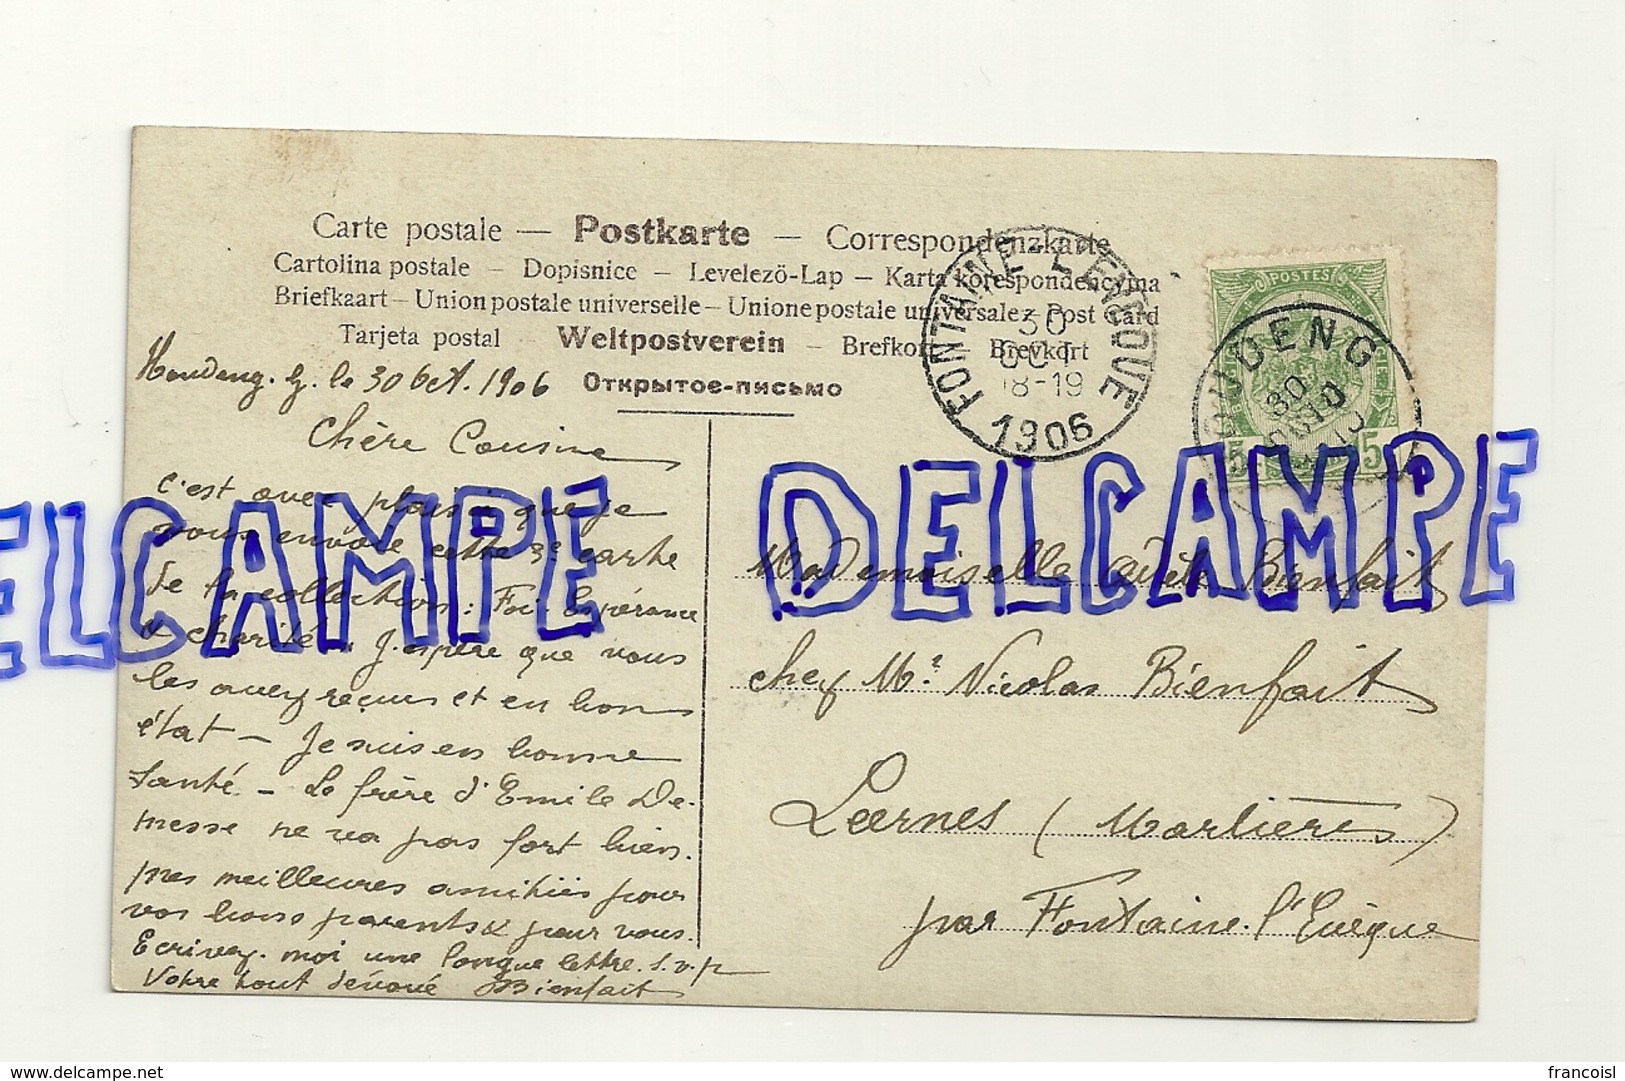 Carte postale — Postkarte — Correspondenzkarte
Cartolina postale – Dopisnice – Levelező-Lap – Karta korespondencyjna
Briefkaart – Union postale universelle – Unione postale universale – Post Card
Tarjeta postal – Weltpostverein – Brefkort – Brevkort
Открытое-письмо
FONTAINE-L'EVEQUE
30
OCT
18-19
1906
POSTES
5 5
HOUDENG
30
Houdeng. G. le 30 Oct. 1906
Chère Cousine
C'est avec plaisir que je
vous envoie cette 3e carte
de la collection: Foi Espérance
& charité. J'espère que vous
les avez reçues et en bons
état — Je suis en bonne
santé — Le frère d'Emile De-
messe ne va pas fort bien.
Mes meilleures amitiés pour
vos bons parents & pour vous.
Ecrivez-moi une longue lettre. s.v.p
Votre tout dévoué Bienfait
Mademoiselle Bienfait
chez Mr. Nicolas Bienfait
Leernes (Marlières)
par Fontaine-l'Evêque
DELCAMPE
DELCAMPE
www.delcampe.net
francoisl